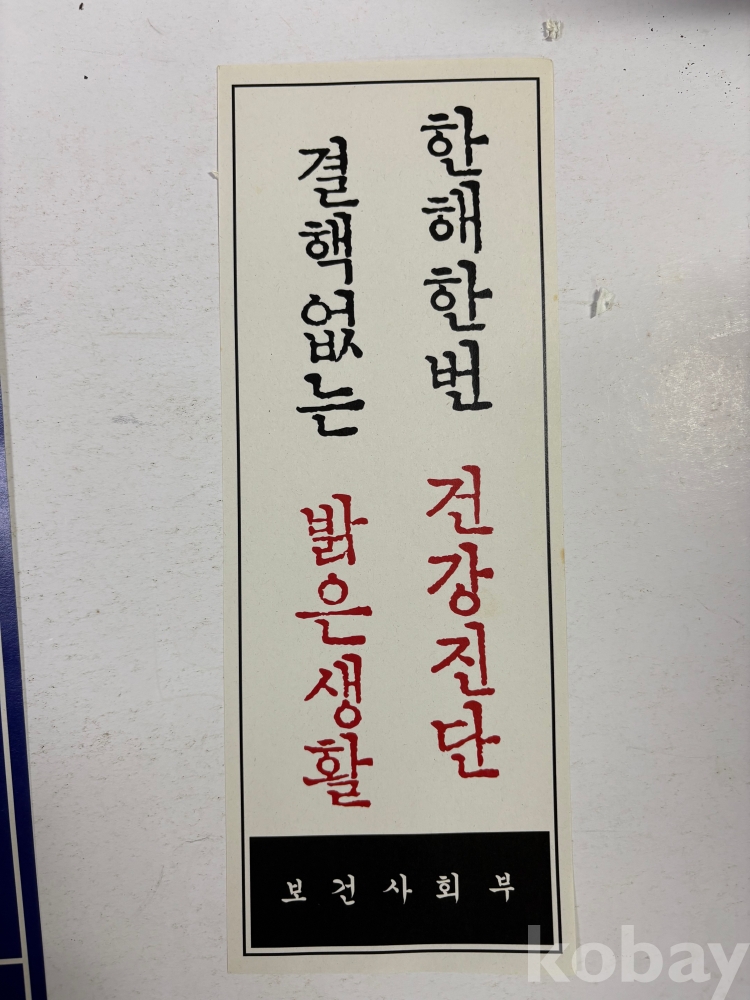 한해한번 건강진단
결핵없는 밝은생활
보건사회부
kobay